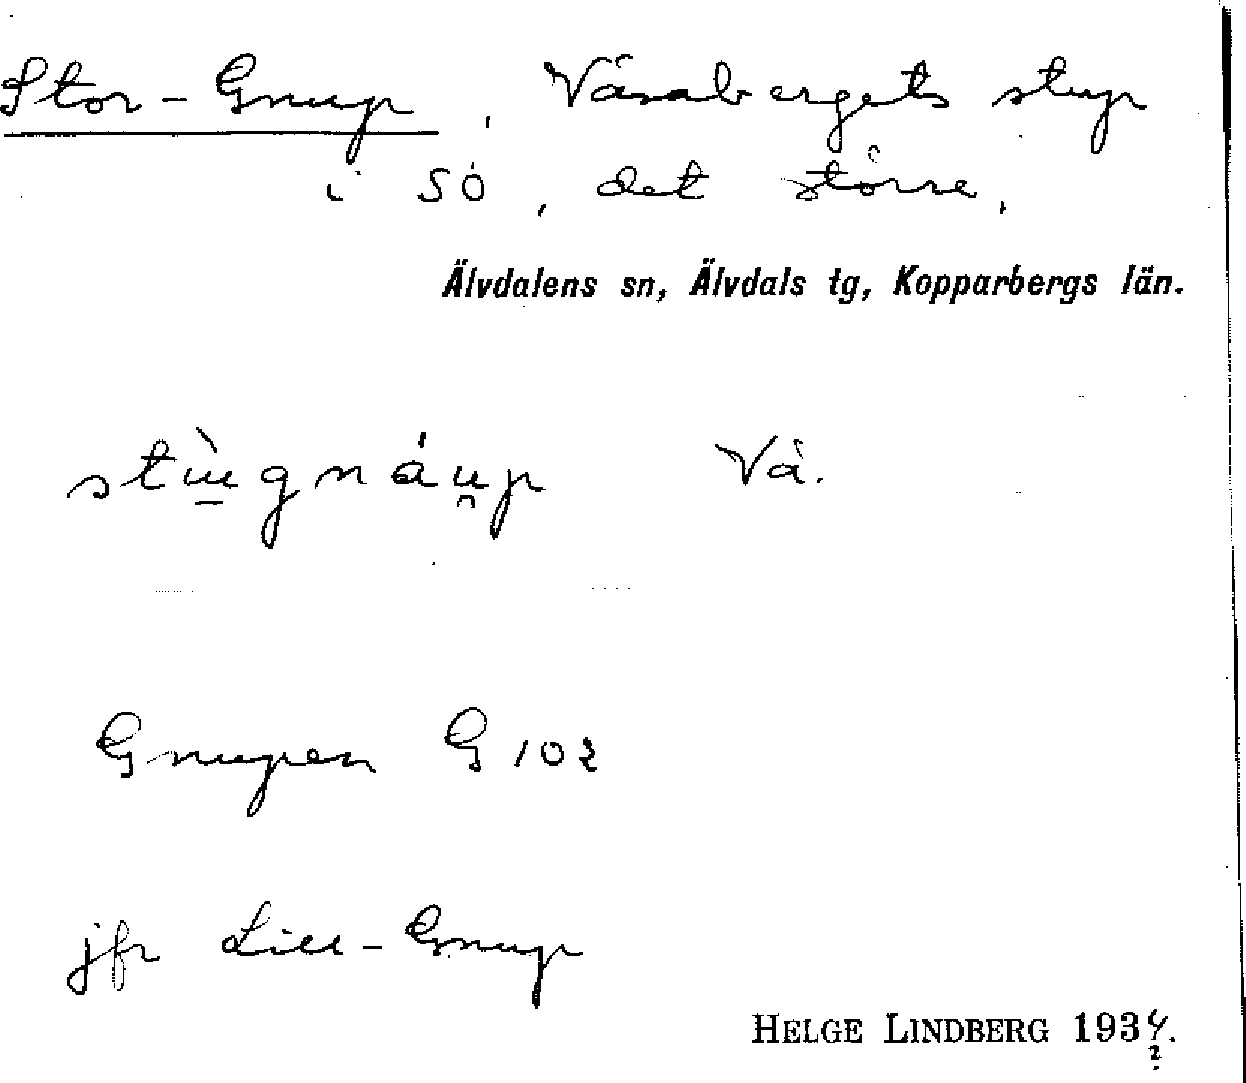 Stor-Gnup, Våsabergets stup
i SÖ, det större.
Älvdalens sn, Älvdals tg, Kopparbergs län.
Vå.
Gnupen G 102
jfr Lill-Gnup
HELGE LINDBERG 1934.